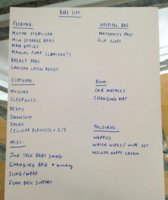 BABY LIST.
FEEDING.
MILTON STERILISER
MILK STORAGE BAGS
MAM BOTTLES
MANUAL PUMP (LANSINOH?)
BREAST PADS
LANSINOH LATCH ASSIST
CLOTHING
MUSLINS
SLEEPSUITS
VESTS
SNOWSUIT
SOCKS
CELLULAR BLANKETS x 2/3
MISC.
JOIE BABY SWING
CHANGING BAG +
SLING/WRAP
FOAM BATH SUPPORT
HOSPITAL BAG.
MATERNITY PADS
FLIP FLOPS
ROOM.
CRIB MATTRESS
CHANGING MAT
TOILETRIES.
NAPPIES
WATER WIPES / WIPE SET
NAPPY CREAM